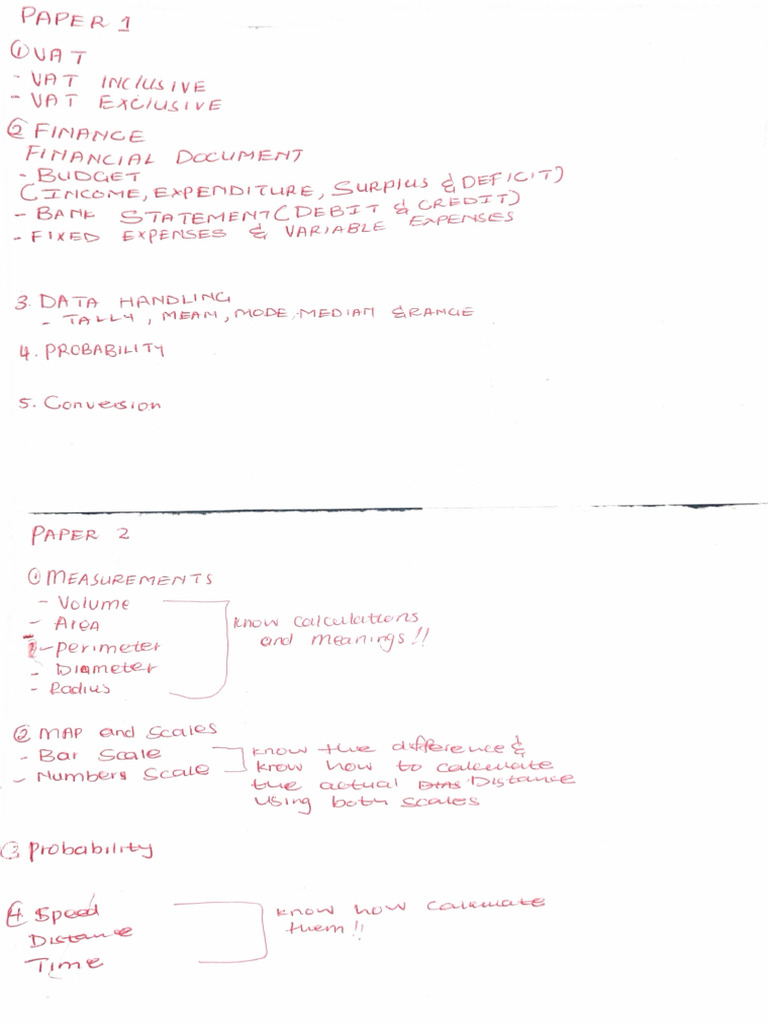 PAPER 1
① VAT
- VAT INCLUSIVE
- VAT EXCLUSIVE
② FINANCE
FINANCIAL DOCUMENT
- BUDGET
(INCOME, EXPENDITURE, SURPLUS & DEFICIT)
- BANK STATEMENT (DEBIT & CREDIT)
- FIXED EXPENSES & VARIABLE EXPENSES
3. DATA HANDLING
- TALLY, MEAN, MODE, MEDIAN & RANGE
4. PROBABILITY
5. Conversion
PAPER 2
① MEASUREMENTS
- Volume
- Area
- perimeter
- Diameter
- Radius
know calculations
and meanings!!
② MAP and Scales
- Bar Scale
- Numbers Scale
know the difference &
know how to calculate
the actual Distance
using both scales
③ Probability
④ Speed
Distance
Time
know how calculate
them!!